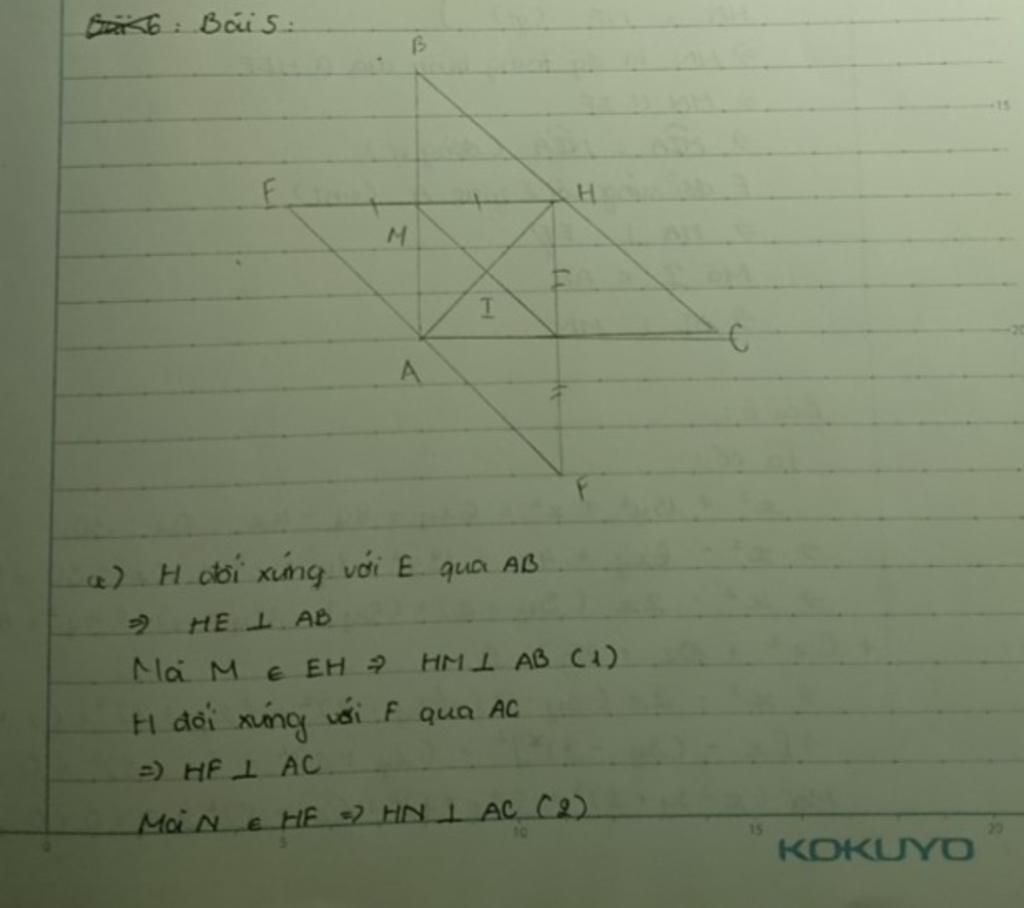 Bài 5:
B
15
E
H
M
I
20
C
A
F
a) H đối xứng với E qua AB
⇒ HE ⊥ AB
Mà M ∈ EH ⇒ HM ⊥ AB (1)
H đối xứng với F qua AC
⇒ HF ⊥ AC
Mà N ∈ HF ⇒ HN ⊥ AC (2)
0 5 10 15 20
KOKUYO